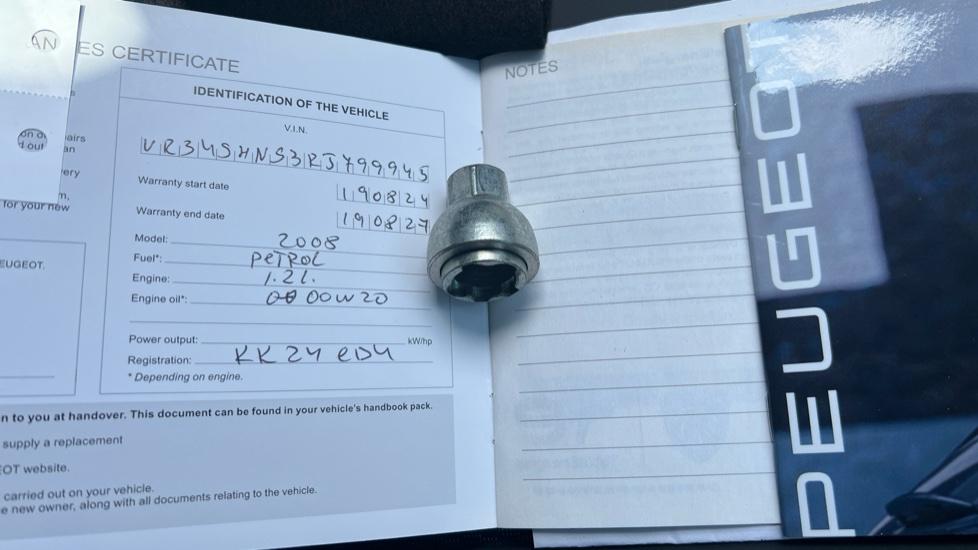 AN
ES CERTIFICATE
IDENTIFICATION OF THE VEHICLE
V.I.N.
VR3USHNS3RJ799945
Warranty start date
190824
Warranty end date
190827
Model: 2008
Fuel*: PETROL
Engine: 1.2L.
Engine oil*: 00W20
Power output: kW/hp
Registration: KK24 EDU
* Depending on engine.
on o
d out
airs
an
ery
m,
for your new
EUGEOT.
n to you at handover. This document can be found in your vehicle's handbook pack.
supply a replacement
EOT website.
carried out on your vehicle.
e new owner, along with all documents relating to the vehicle.
NOTES
PEUGEOT